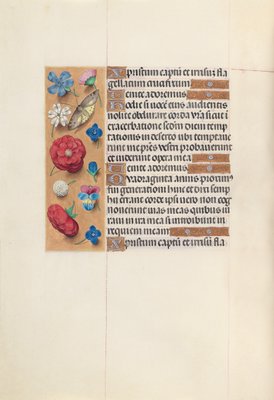 Xpristum captū et irrisū fla
gellatum crucifixum
Venite adoremus
Hodie si vocē eius audieritis
nolite obdurare corda vrā sicut ī
exacerbatione scdm diem temp
tationis in deserto ubi temptave
runt me prēs vestri probaverunt
et viderunt opera mea
Venite adoremus
Quadraginta annis proxim
fui generationi huic et dixi semp
hii errant corde ipsi vero non cog
noverunt vias meas quibus iu
ravi in ira mea si introibunt in
requiem meam
Xpristum captū et irrisū fla